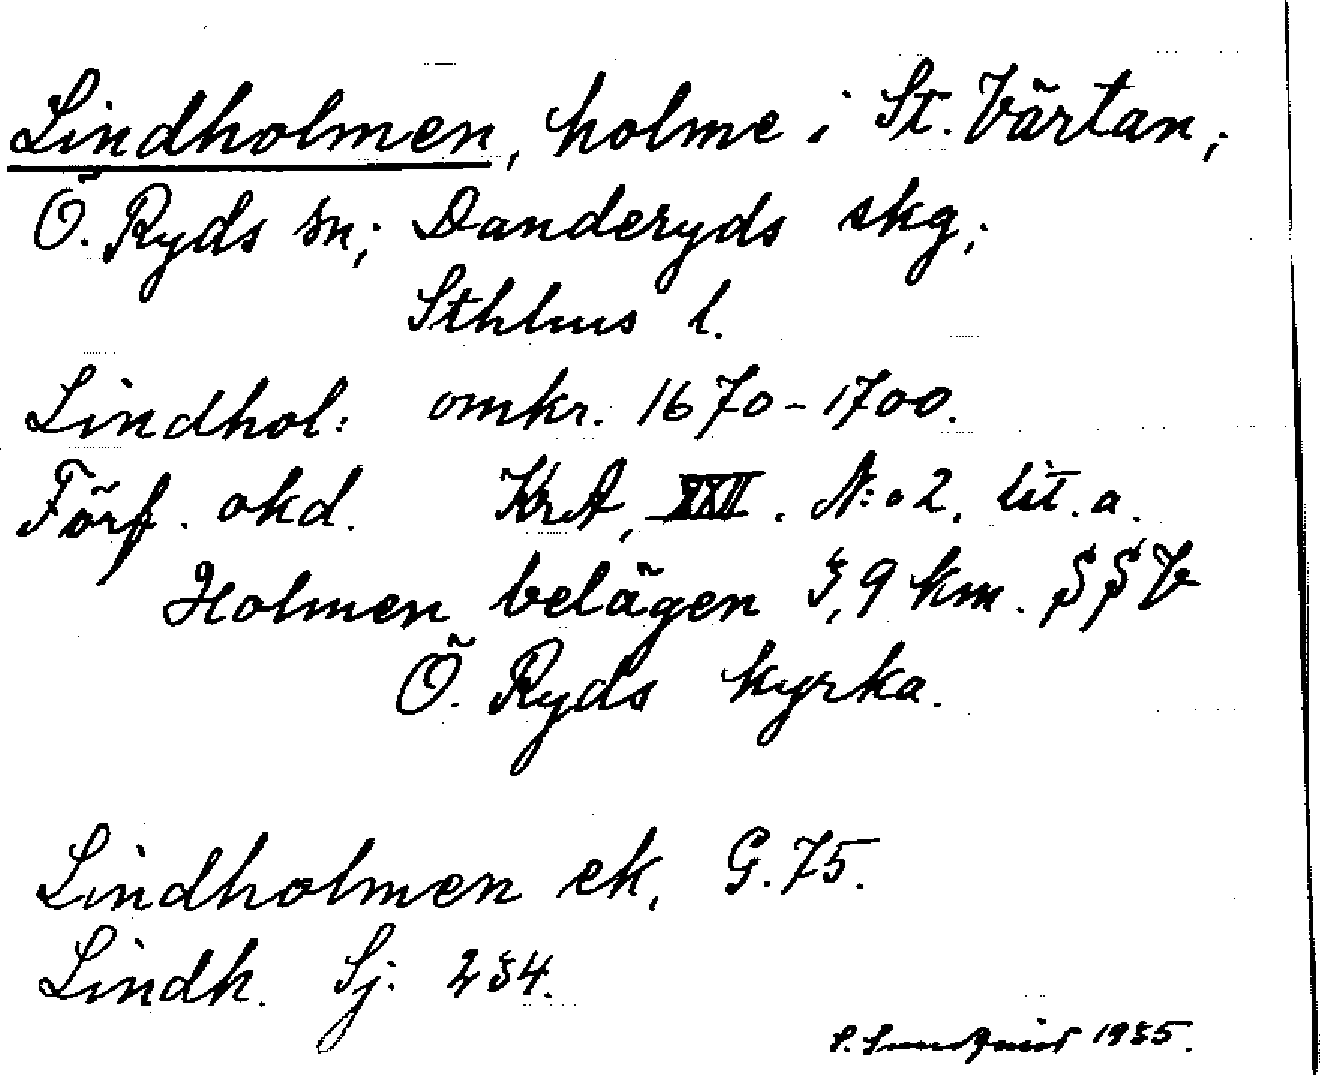 Lindholmen, holme i St. Värtan;
Ö. Ryds sn; Danderyds skg;
Sthlms l.
Lindhol: omkr. 1670-1700.
Förf. okd. KrA, XXII. N:o 2. lit. a.
Holmen belägen 3,9 km. SSV
Ö. Ryds kyrka.
Lindholmen ek. G. 75.
Lindh. Sj. 234.
1935.